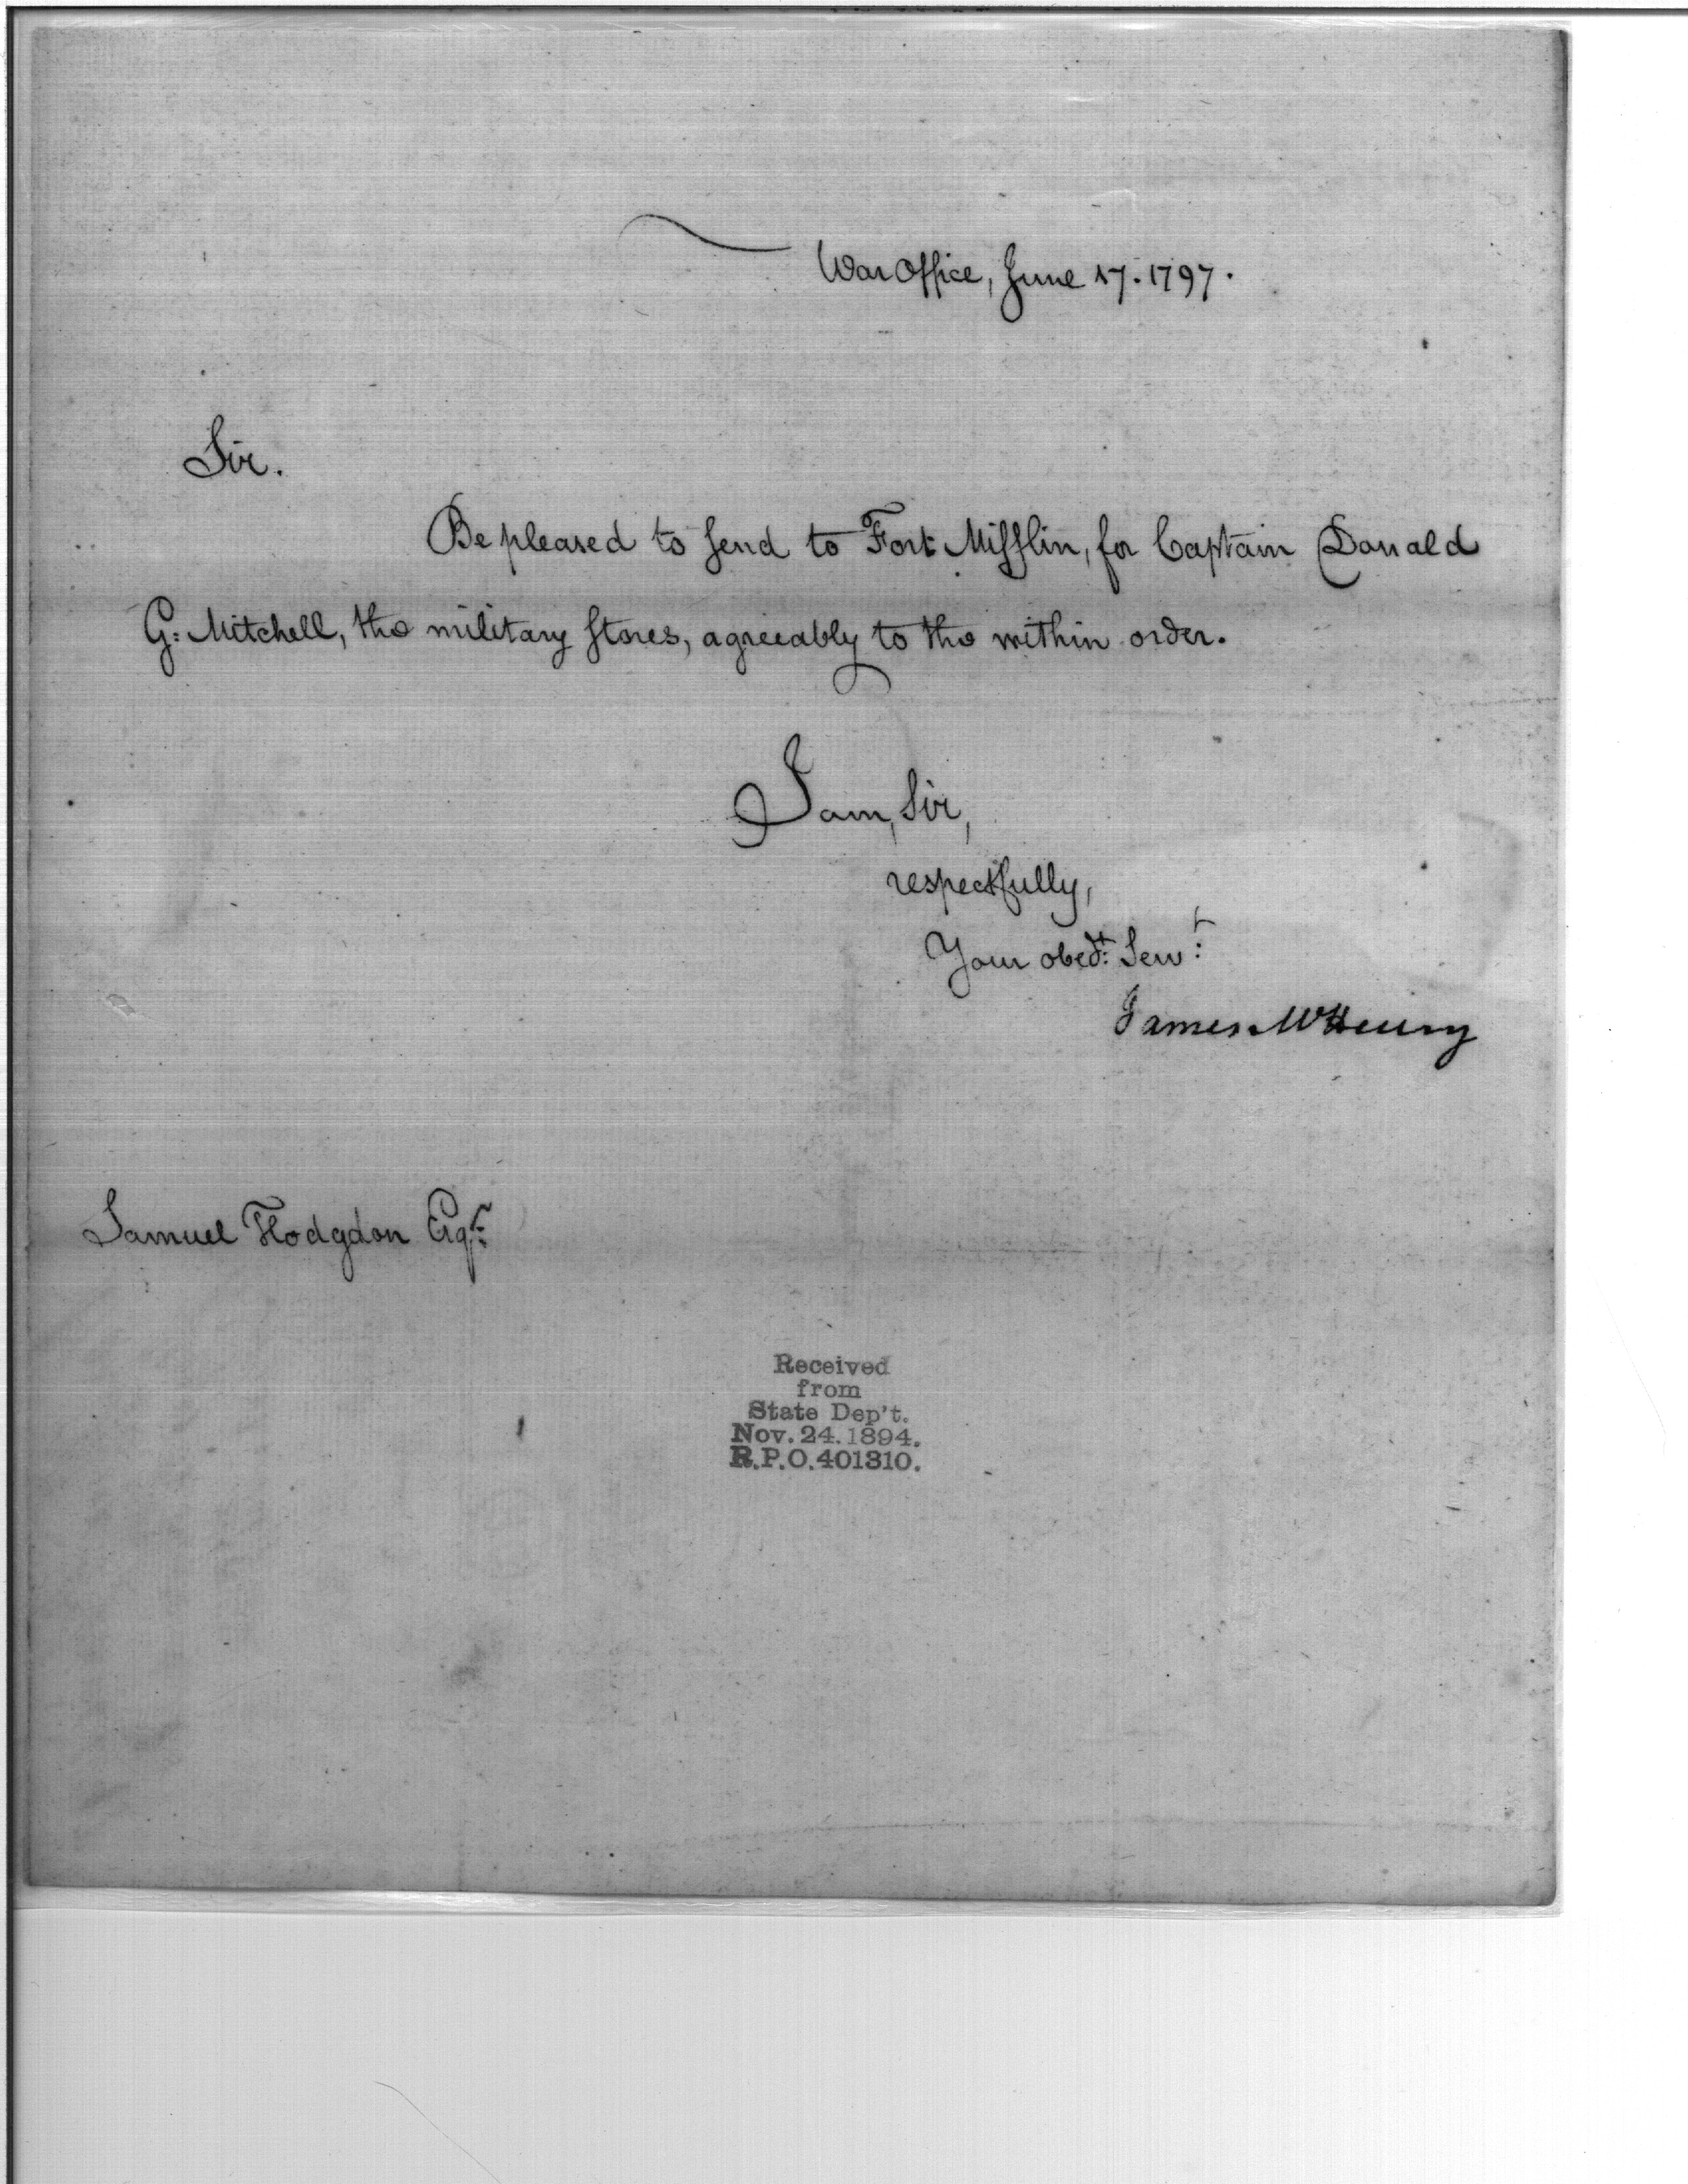 War Office, June 17. 1797.
Sir.
Be pleased to send to Fort Mifflin, for Captain Donald
G: Mitchell, the military stores, agreeably to the within order.
I am, Sir,
respectfully,
Your obedt: Servt:
James McHenry
Samuel Hodgdon Esqr:
Received
from
State Dep't.
Nov. 24. 1894.
R.P.O. 401310.